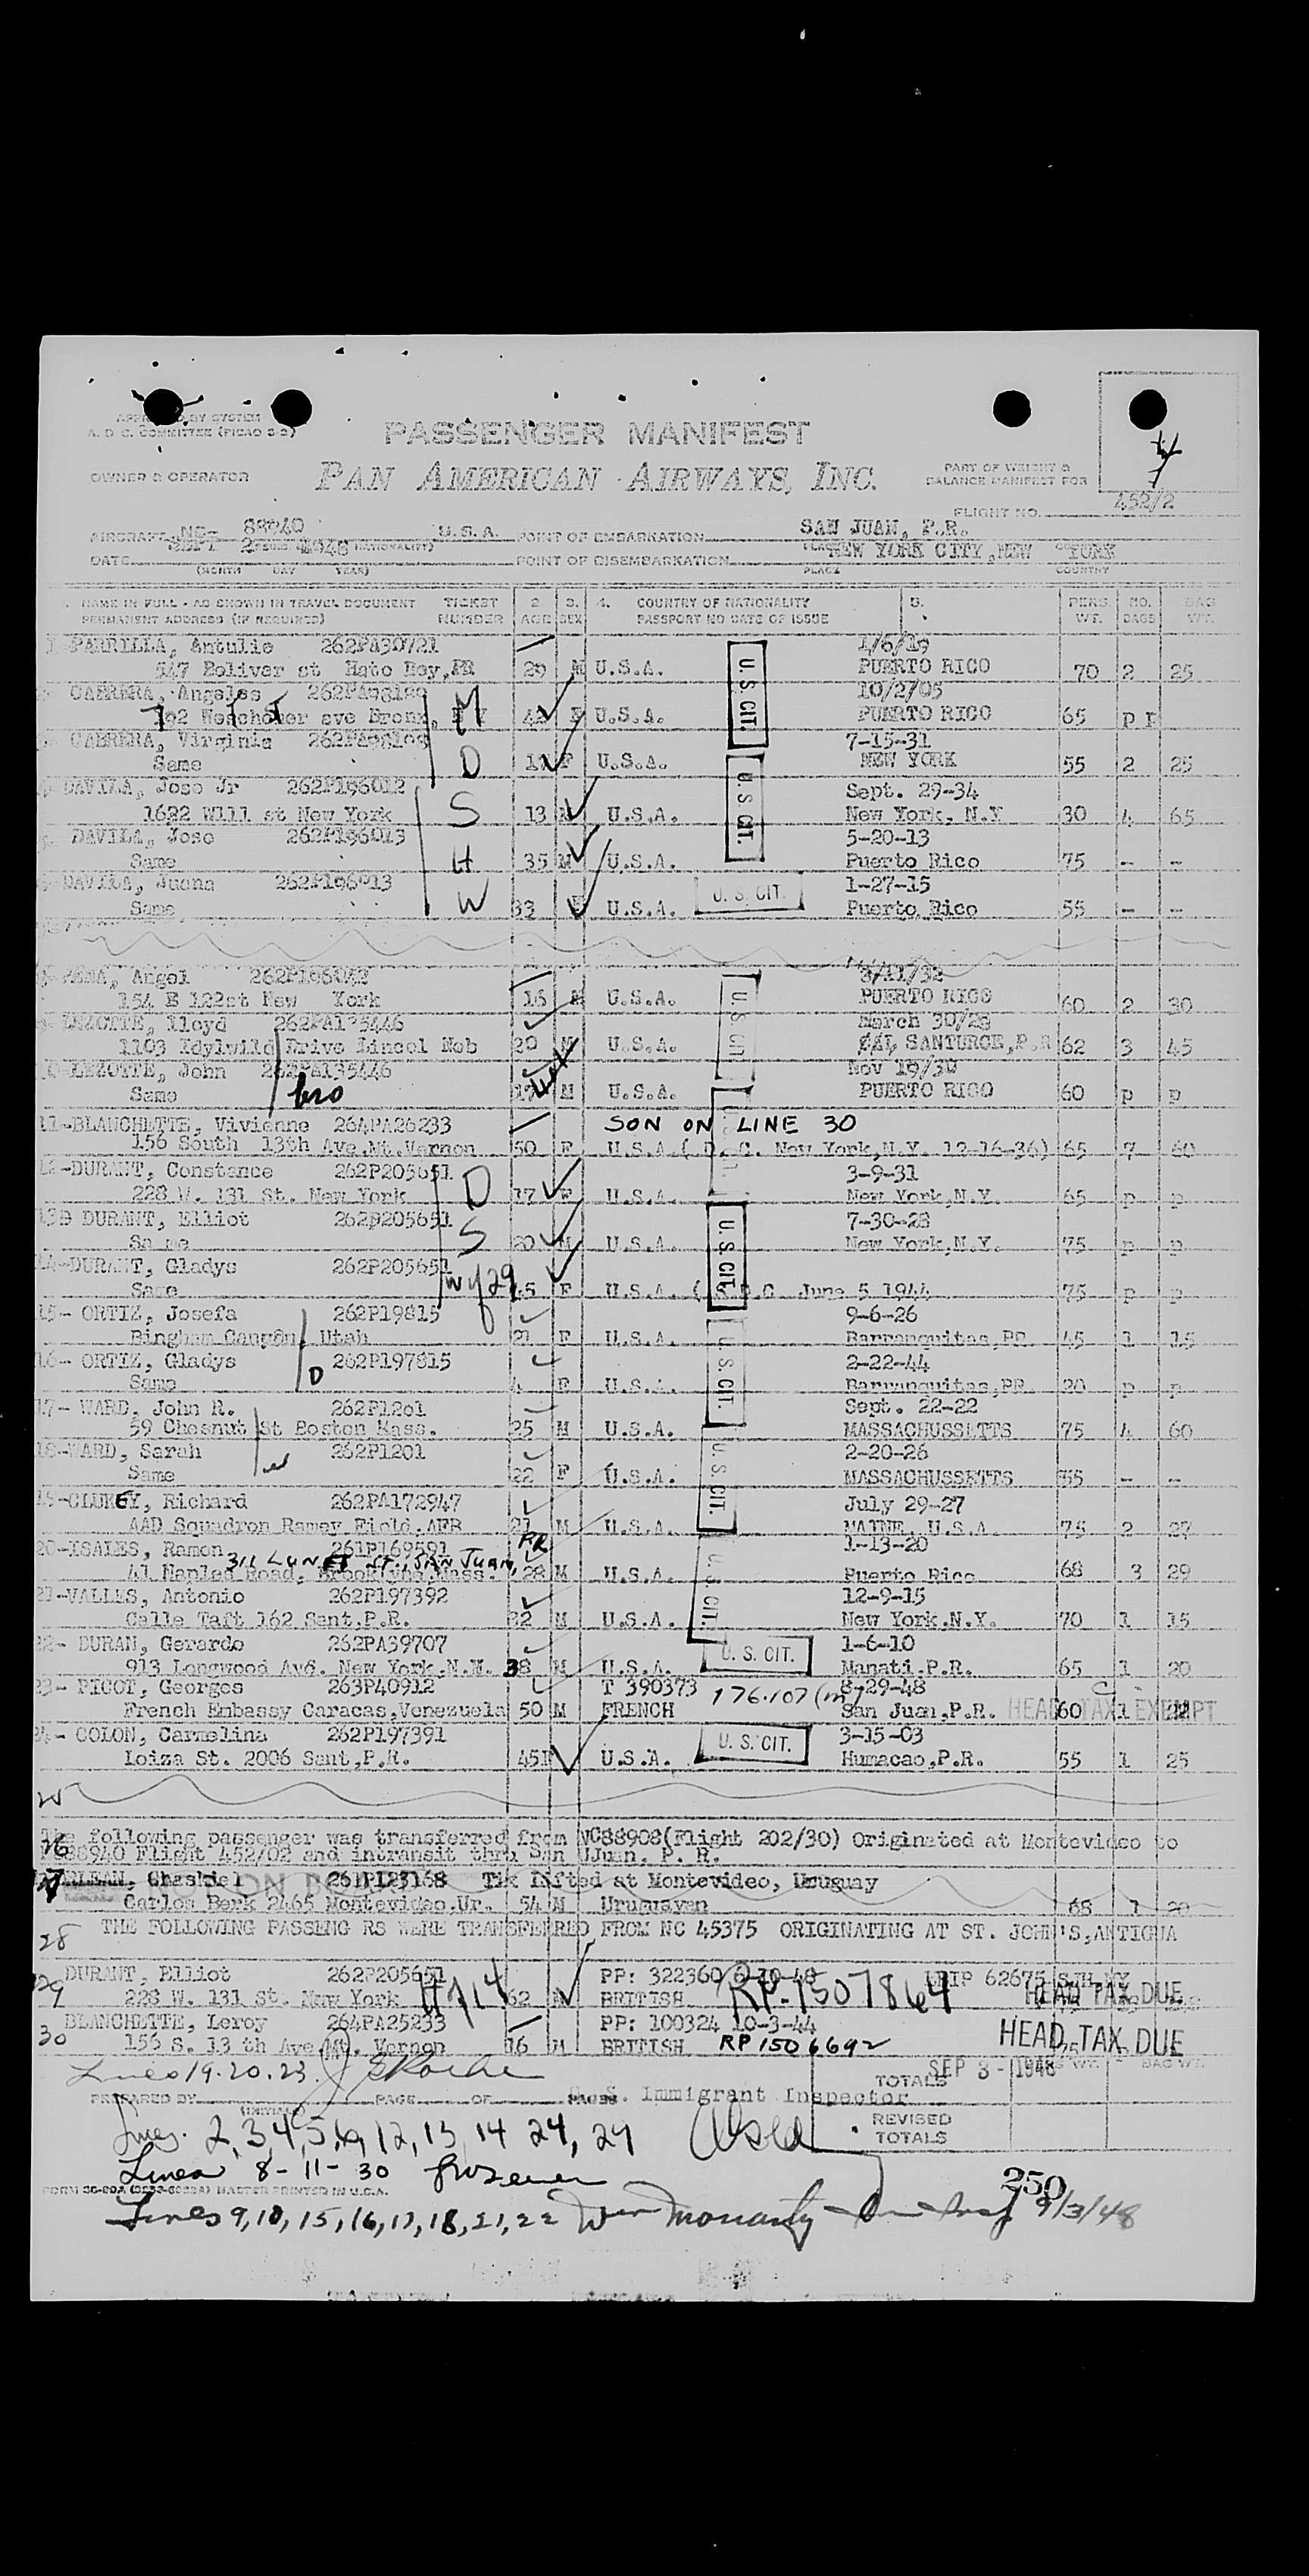 APPROVED BY SYSTEM
A. D. C. COMMITTEE (PICAO S 2)
PASSENGER MANIFEST
OWNER & OPERATOR PAN AMERICAN AIRWAYS, INC.
PART OF WEIGHT &
BALANCE MANIFEST FOR
FLIGHT NO. 452/2
AIRCRAFT NC- 88940 U.S.A. POINT OF EMBARKATION SAN JUAN, P.R.
DATE SEPT 2 1948 POINT OF DISEMBARKATION NEW YORK CITY, NEW YORK
(MONTH DAY YEAR) PLACE COUNTRY
NAME IN FULL - AS SHOWN IN TRAVEL DOCUMENT TICKET 2. 3. 4. COUNTRY OF NATIONALITY 5. PERS NO. BAG
PERMANENT ADDRESS (IF REQUIRED) NUMBER AGE SEX PASSPORT NO DATE OF ISSUE WT. BAGS WT.
1-PARRILLA, Antulio 262PA30721 1/6/19
547 Boliver st Hato Rey, PR 29 M U.S.A. U.S. CIT. PUERTO RICO 70 2 25
CABRERA, Angeles 10/2/05
ave Bronx, N Y M 42 F U.S.A. PUERTO RICO 65 p p
CABRERA, Virginia 7-15-31
Same D F U.S.A. NEW YORK 55 2 25
DAVILA, Jose Jr 262P196012 U.S. CIT. Sept. 29-34
1622 Will st New York S 13 M U.S.A. New York, N.Y 30 4 65
DAVILA, Jose 262P196013 5-20-13
Same H 35 M U.S.A. Puerto Rico 75 - -
DAVILA, Juana 262P196013 1-27-15
Same W 33 F U.S.A. U. S. CIT. Puerto Rico 55 - -
Angel
154 E 122st New York 16 M U.S.A. U.S. CIT. PUERTO RICO 60 2 30
LEZOTTE, lloyd 262PA135446 March 30/28
1103 Idylwild Drive Lincol Neb 20 M U.S.A. SANTURCE, P.R 62 3 45
10-LEZOTTE, John 262PA135446 Nov 19/30
Same bro 17 M U.S.A. PUERTO RICO 60 p p
11-BLANCHETTE, Vivienne 264PA26233 SON ON LINE 30
156 South 13th Ave.Mt.Vernon 50 F U.S.A.( D. C. New York,N.Y. 12-16-36) 65 7 60
12-DURANT, Constance 262P205651 3-9-31
228 W. 131 St. New York D 17 F U.S.A. New York,N.Y. 65 p p
13- DURANT, Elliot 262P205651 7-30-28
Same S 20 M U.S.A. U.S. CIT. New York,N.Y. 75 p p
14-DURANT, Gladys 262P205651
Same W of 29 45 F U.S.A. June 5 1944 75 p p
15- ORTIZ, Josefa 262P19815 9-6-26
Bingham Canyon, Utah 21 F U.S.A. U.S. CIT. Barranquitas,PR. 45 1 15
16- ORTIZ, Gladys 262P197815 2-22-44
Same D 4 F U.S.A. Barranquitas,PR. 20 p p
17- WARD, John R. 262P1201 Sept. 22-22
59 Chesnut St Boston Mass. 25 M U.S.A. MASSACHUSSETTS 75 4 60
18-WARD, Sarah 262P1201 U.S. CIT. 2-20-26
Same W 22 F U.S.A. MASSACHUSSETTS - -
19-CLUKEY, Richard 262PA172947 July 29-27
AAD Squadron Ramey Field.AFB 21 M U.S.A. MAINE, U.S.A. 75 2 27
20-ISALES, Ramon 261P169591 PR 1-13-20
311 LUNA ST., SAN JUAN,
41 Naples Road, Brooklyne,Mass. 28 M U.S.A. U.S. CIT. Puerto Rico 68 3 29
21-VALLES, Antonio 262P197392 12-9-15
Calle Taft 162 Sant.P.R. 32 M U.S.A. New York.N.Y. 70 1 15
22- DURAN, Gerardo 262PA39707 1-6-10
913 Longwood Ave. New York.N.Y. 38 M U.S.A. U. S. CIT. Manati.P.R. 65 1 20
23- PICOT, Georges 263P40912 T 390373 176.107 8-29-48
French Embassy Caracas,Venezuela 50 M FRENCH San Juan,P.R. HEAD TAX EXEMPT 60 1 22
24- COLON, Carmelina 262P197391 3-15-03
Loiza St. 2006 Sant,P.R. 45F U.S.A. U. S. CIT. Humacao,P.R. 55 1 25
25
26 The following passenger was transferred from NC88908(Flight 202/30) Originated at Montevideo to
NC88940 Flight 452/02 and intransit thru San JJuan, P. R.
27 Chaskiel 261P123168 Tkt lifted at Montevideo, Uruguay
Carlos Berk 2465 Montevideo.Ur. 54 M Uruguayan 68 1 20
28 THE FOLLOWING PASSENG RS WERE TRANSFERRED FROM NC 45375 ORIGINATING AT ST. JOHN'S, ANTIGUA
29 DURANT, Elliot 262P205651 PP: 322360
228 W. 131 St. New York H of 14 62 M BRITISH RP-1507864 HEAD TAX DUE
30 BLANCHETTE, Leroy 264PA25233 PP: 100324 10-3-44
156 S. 13 th Ave Mt. Vernon 16 M BRITISH RP 1506692 HEAD TAX DUE
Lines 19.20.23. SEP 3 - 1948
PREPARED BY PAGE OF U. S. Immigrant Inspector TOTALS BAG WT.
(INITIAL)
Lines. 2,3,4,5,6,12,13,14 24, 29 REVISED TOTALS
Lines 8 - 11 - 30
250
Lines 9,10,15,16,17,18,21,22 Wm Moriarty Imm Insp 9/3/48